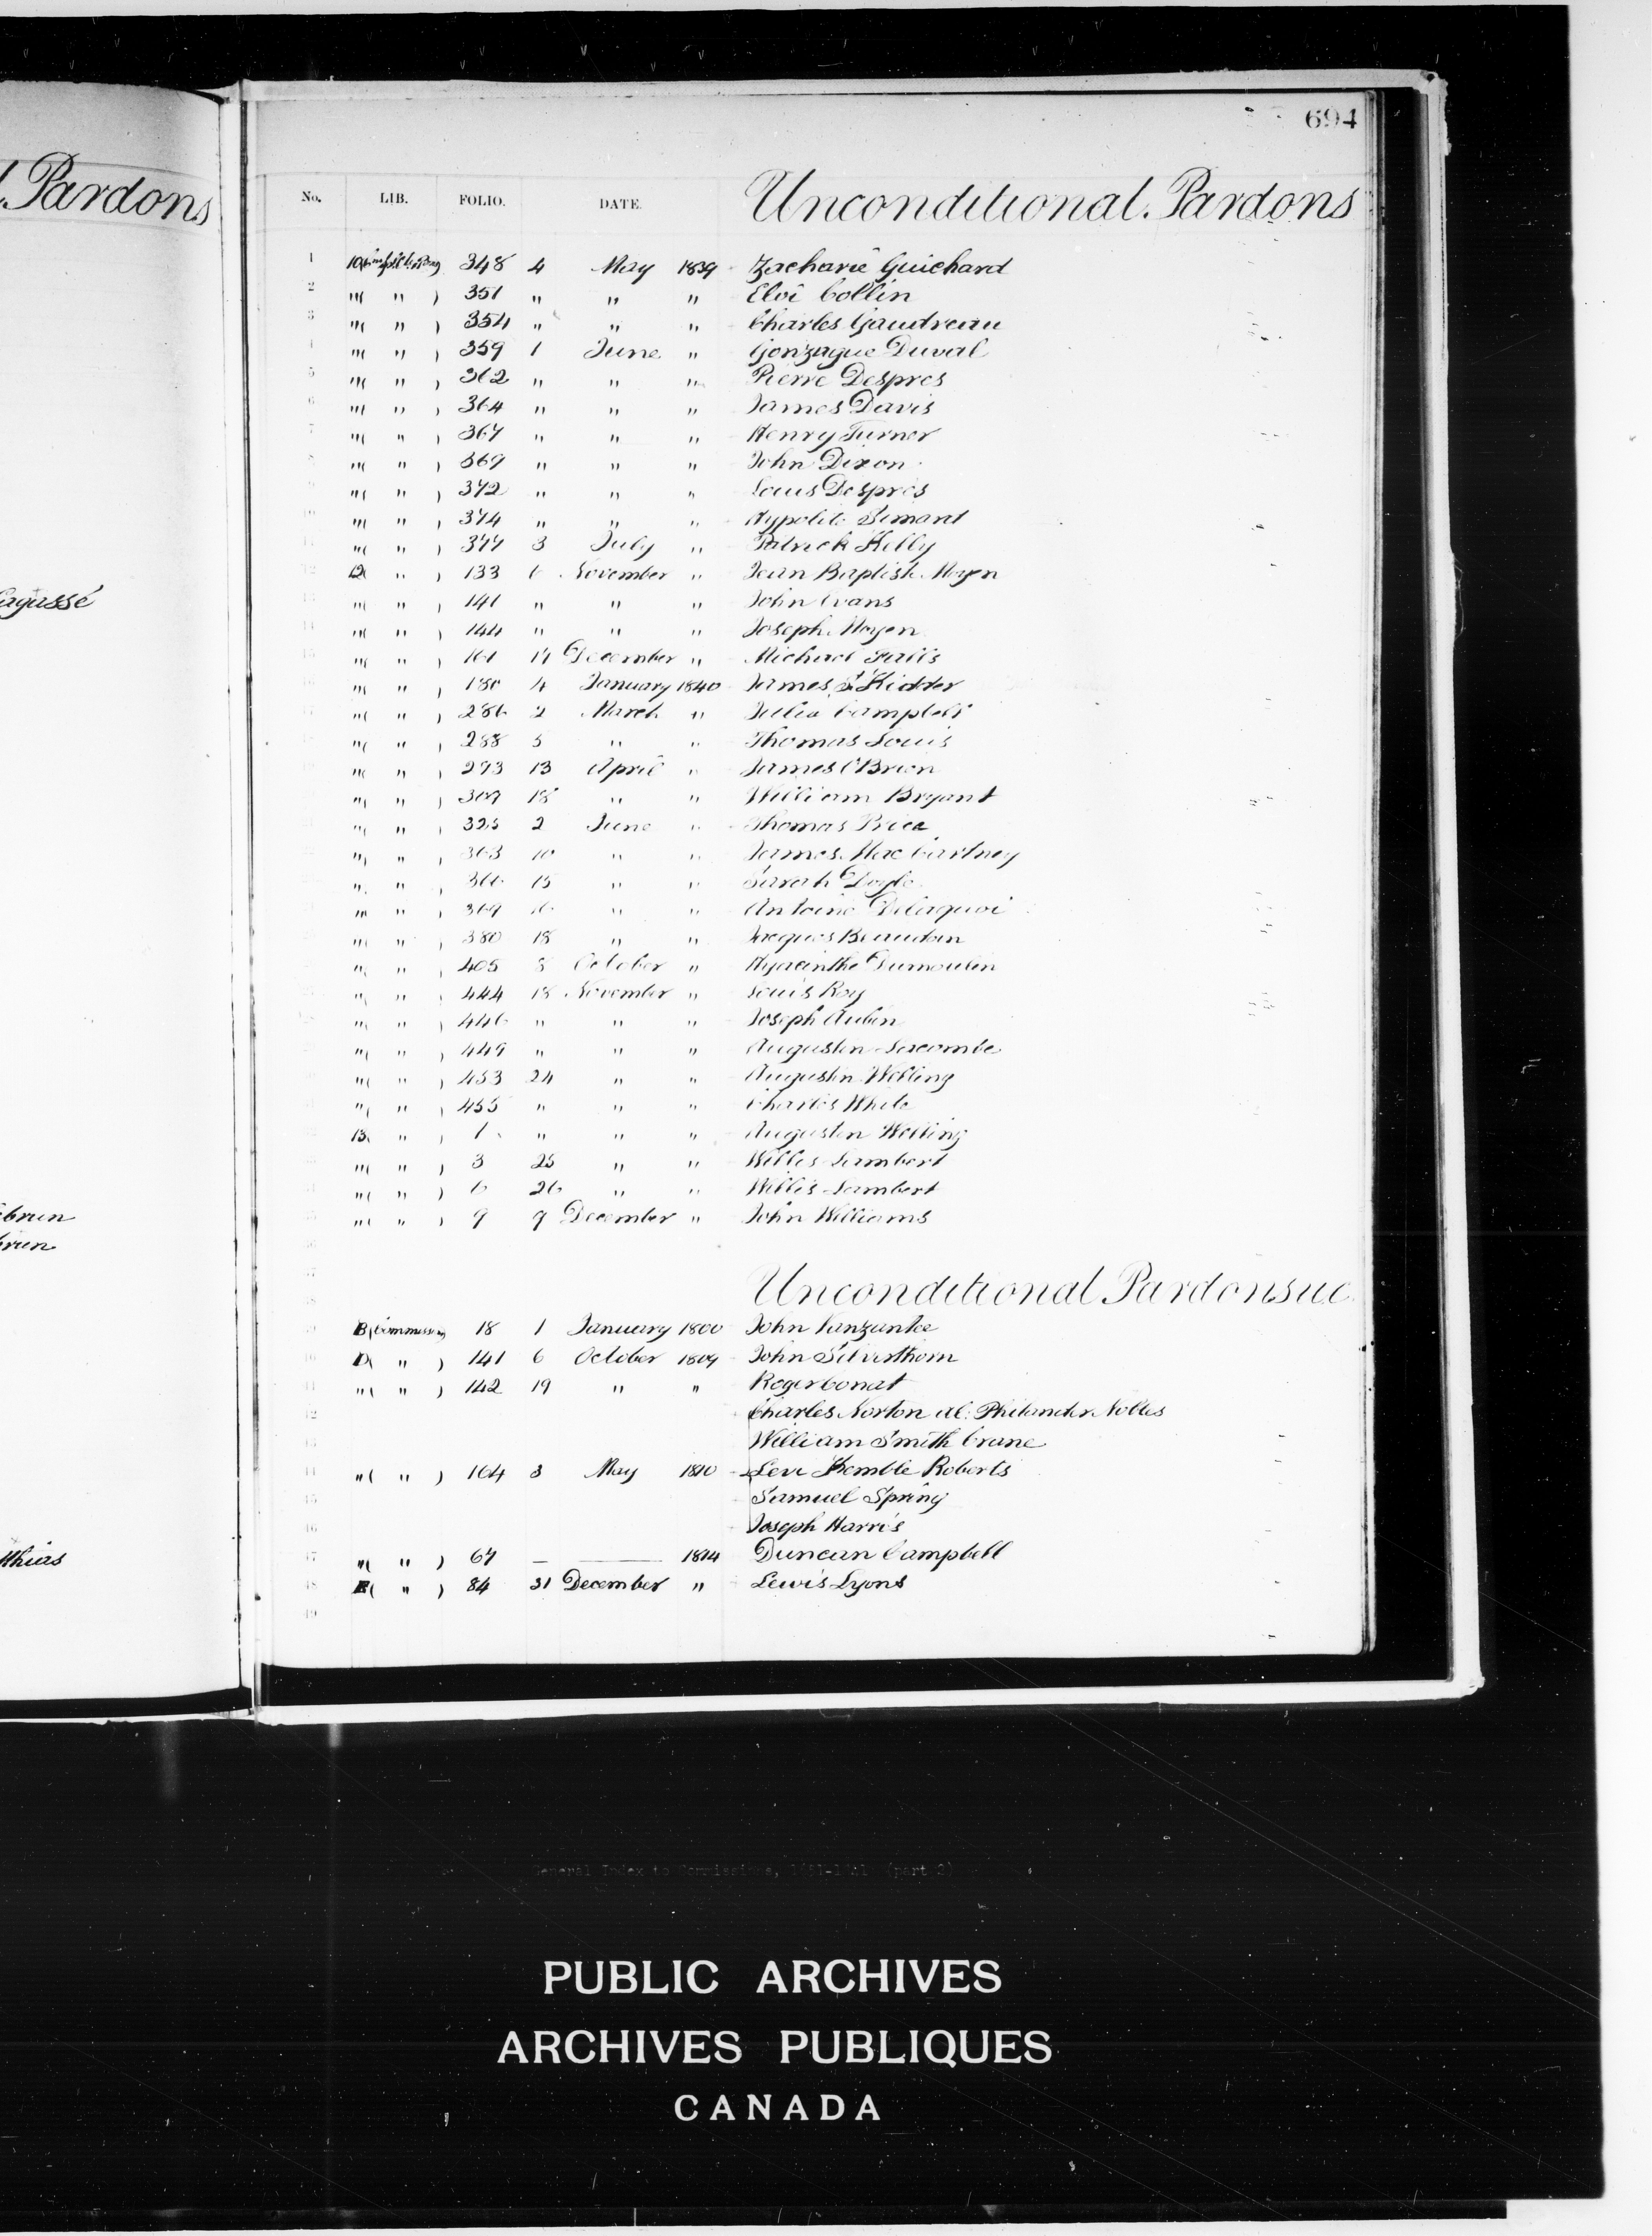 694
Pardons
No. LIB. FOLIO. DATE. Unconditional Pardons
1 348 4 May 1839 Zacharie Guichard
2 "( " ) 351 " " " Eloi Collin
3 "( " ) 354 " " " Charles Gaudreau
4 "( " ) 359 1 June " Gonzague Duval
5 "( " ) 362 " " " Pierre Despres
6 "( " ) 364 " " " James Davis
7 "( " ) 367 " " " Henry Turner
8 "( " ) 369 " " " John Dixon
9 "( " ) 372 " " " Louis Despres
10 "( " ) 374 " " " Hypolite Simant
11 "( " ) 377 3 July " Patrick Kelly
12 12( " ) 133 6 November " Jean Baptiste Moyen
13 "( " ) 141 " " " John Evans
14 "( " ) 144 " " " Joseph Moyen
15 "( " ) 161 17 December " Michael Falls
16 "( " ) 180 4 January 1840 James S. Kidder
17 "( " ) 286 2 March " Julia Campbell
18 "( " ) 288 5 " " Thomas Louis
19 "( " ) 293 13 April " James O'Brien
20 "( " ) 309 18 " " William Bryant
21 "( " ) 325 2 June " Thomas Price
22 "( " ) 363 10 " " James MacCartney
23 "( " ) 366 15 " " Sarah Doyle
24 "( " ) 369 16 " " Antoine Delaquoi
25 "( " ) 380 18 " " Jacques Beaudoin
26 "( " ) 405 8 October " Hyacinthe Dumoulin
27 "( " ) 444 18 November " Louis Roy
28 "( " ) 446 " " " Joseph Aubin
29 "( " ) 449 " " " Augustin Lacombe
30 "( " ) 453 24 " " Augustin Welling
31 "( " ) 455 " " " Charles White
32 13( " ) 1 " " " Augustin Welling
33 "( " ) 3 25 " " Willis Lambert
34 "( " ) 6 26 " " Willis Lambert
35 "( " ) 9 9 December " John Williams
36
37
38 Unconditional Pardons u.c.
39 B( Commissions ) 18 1 January 1800 John Vanzantee
40 D( " ) 141 6 October 1809 John Silverthorn
41 "( " ) 142 19 " " Roger Conat
42 Charles Norton al: Philander Nobles
43 William Smith Crane
44 "( " ) 164 3 May 1810 Levi Kemble Roberts
45 Samuel Spring
46 Joseph Harris
47 "( " ) 67 — — 1814 Duncan Campbell
48 E( " ) 84 31 December " Lewis Lyons
49
General Index to Commissions, (part 2)
PUBLIC ARCHIVES
ARCHIVES PUBLIQUES
CANADA